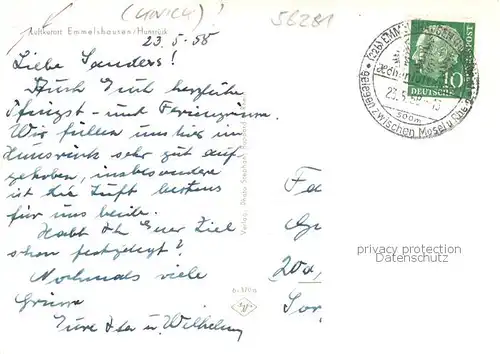 (HUNRÜCK)!
56281
Luftkurort Emmelshausen/Hunsrück
23.5.58
Liebe Sanders!
Auch Euch herzliche
Pfingst- und Feriengrüsse.
Wir fühlen uns hier im
Hunsrück sehr gut auf-
gehoben, insbesondere
ist die Luft bestens
für uns beide.
Habt Ihr Euer Ziel
schon festgelegt?
Nochmals viele
Grüsse
Eure Ida u. Wilhelm
Verlag: Photo Stephan,
Agfa
DEUTSCHE BUNDESPOST
10
23.5.58-15
500m
gelegen zwischen Mosel u.
Fa
20a,
privacy protection
Datenschutz